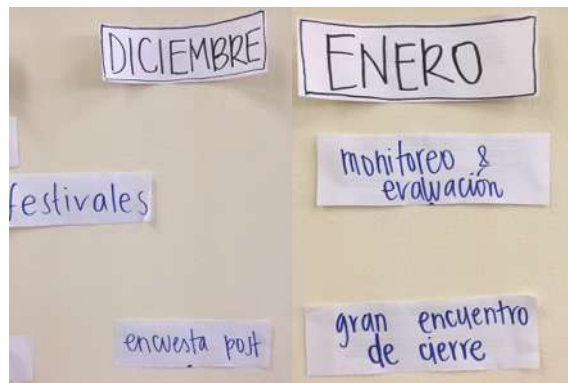 DICIEMBRE
festivales
encuesta post
ENERO
monitoreo &
evaluación
gran encuentro
de cierre